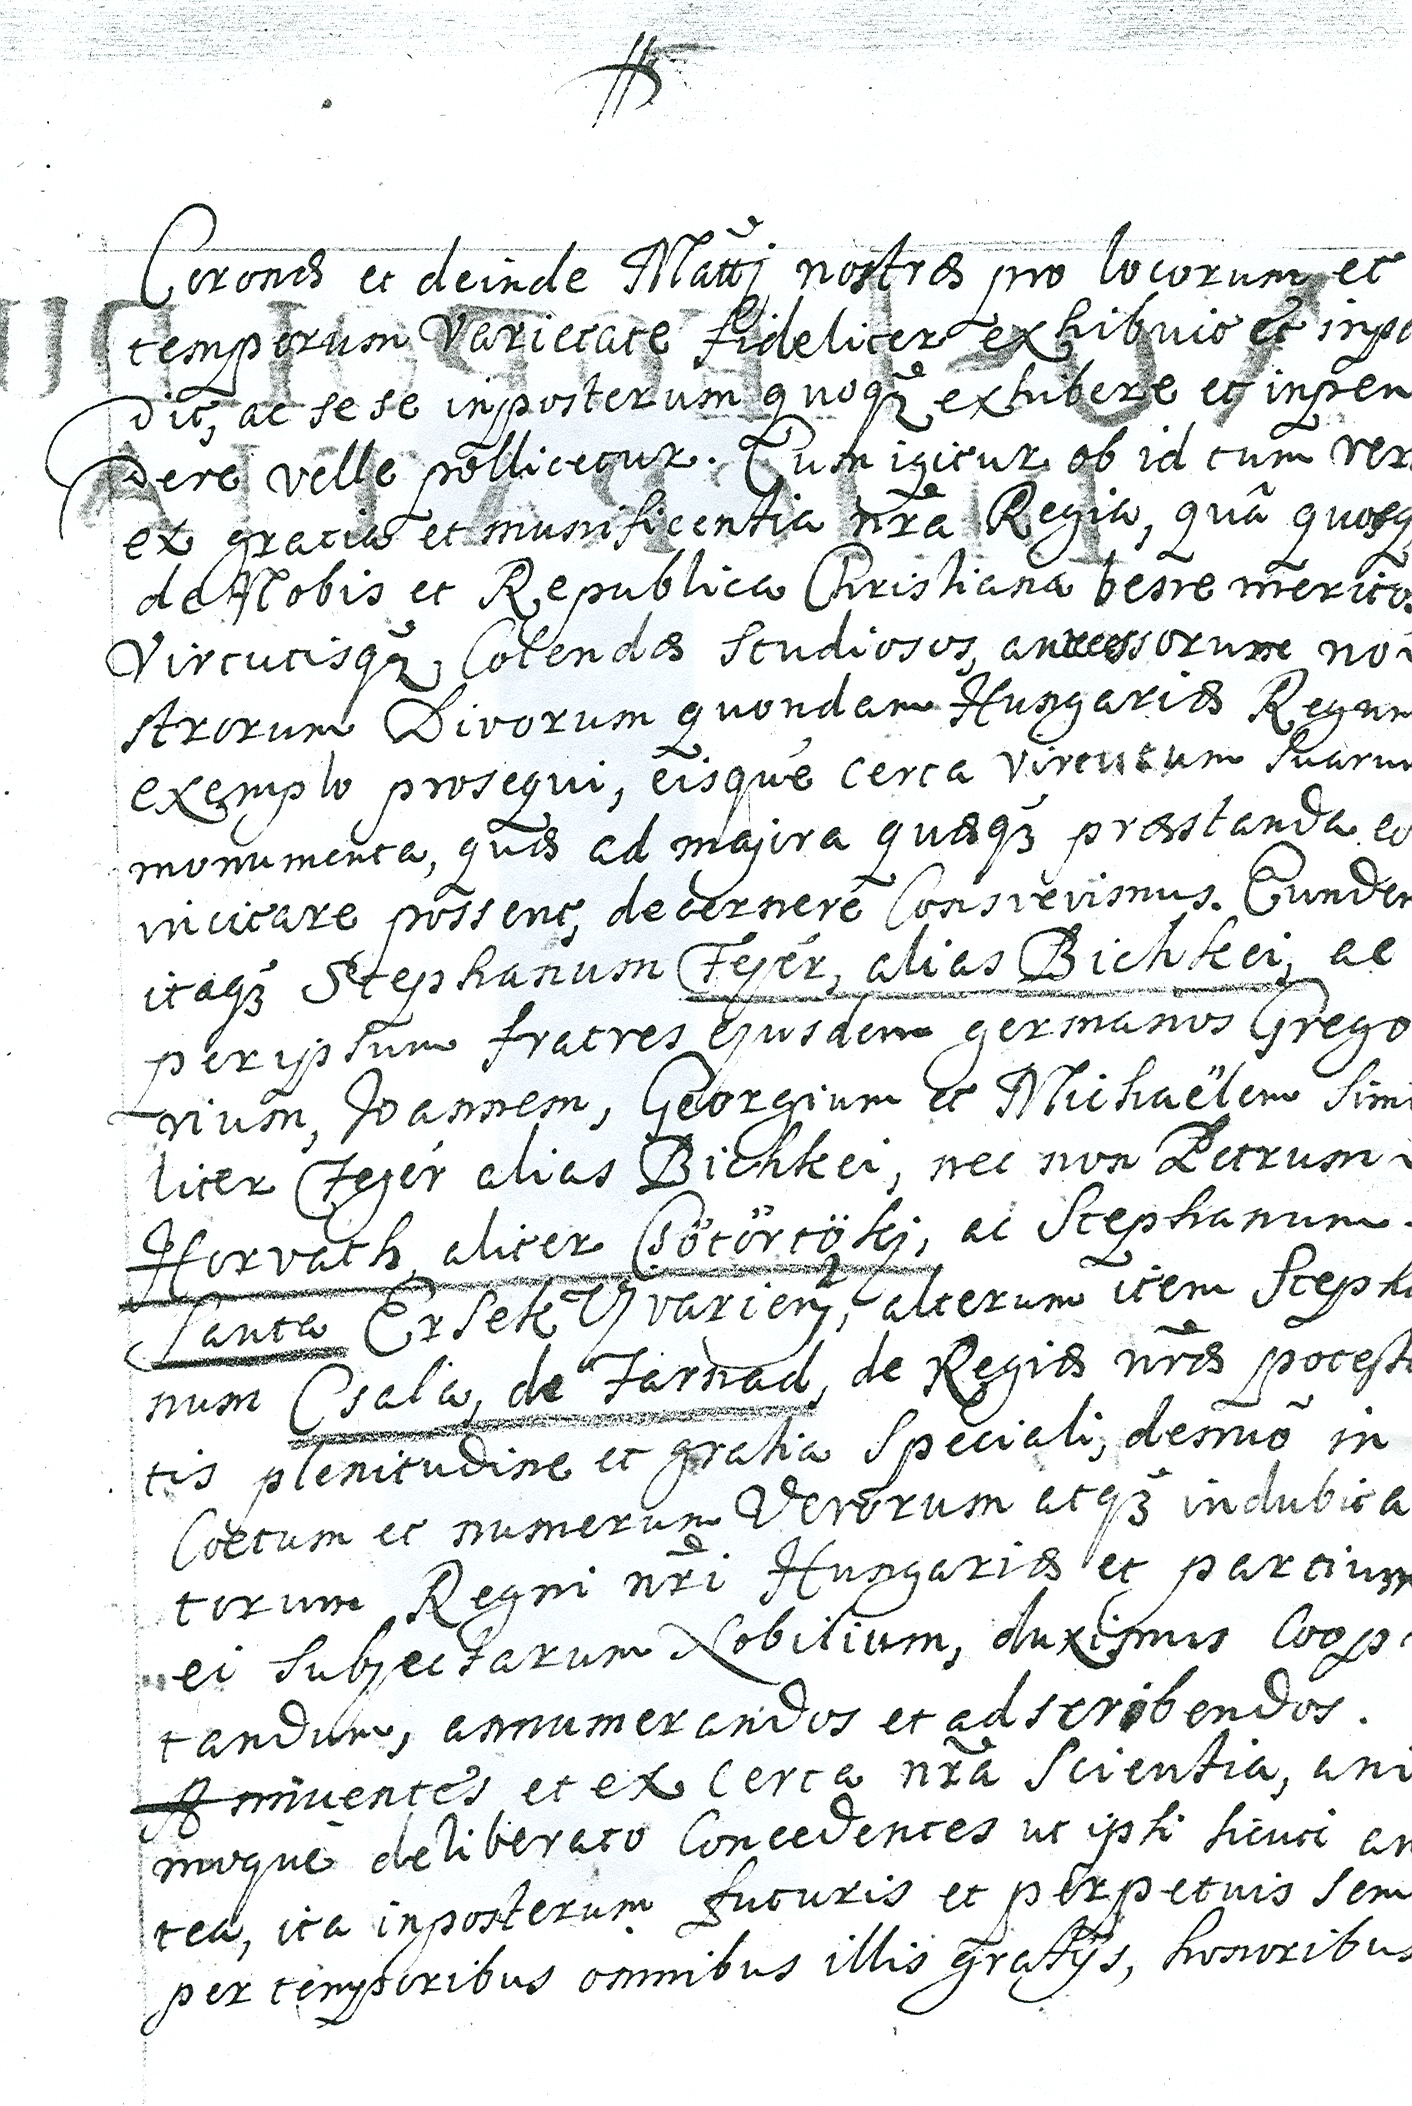 Coronæ et deinde Mattj nostræ pro locorum et
temporum varietate fideliter exhibuit et inpe
dit, ac sese inposterum quoqꝫ exhibere et inpen
dere velle pollicetur. Cum igitur ob id tum ver
ex gratia et munificentia nr̃a Regia, quâ quosq
de Nobis et Republica Christiana bene merito
Virtutisqꝫ Colendæ studiosos, antecessorum no-
strorum Divorum quondam Hungariæ Regum
exemplo prosequi, eisque certa virtutum suarum
monumenta, quæ ad majora quæqꝫ præstanda eo
incitare possent, decernere Consuevimus. Eundem
itaqꝫ Stephanum Fejér, alias Bichkei, ac
per ipsum fratres ejusdem germanos Grego
rium, Joannem, Georgium et Michaëlem Simi
liter Fejér alias Bichkei, nec non Petrum
Horvath, aliter Csötörtökj, ac Stephanum
Santa Ersek Vjvarienꝫ, alterum item Stepha
num Csala, de Farnad, de Regiæ nr̃æ potesta
tis plenitudine et gratia Speciali, denuò in
Coetum et numerum Verorum atqꝫ indubita
torum Regni nr̃i Hungariæ et partium
ei Subjectarum Nobilium, duximus Coop
tandum, annumerandos et adscribendos.
Annuentes et ex Certa nr̃a Scientia, ani
moque deliberato Concedentes ut ipsi sicuti an
tea, ita inposterum futuris et perpetuis Sem
per temporibus omnibus illis gratijs, honoribus